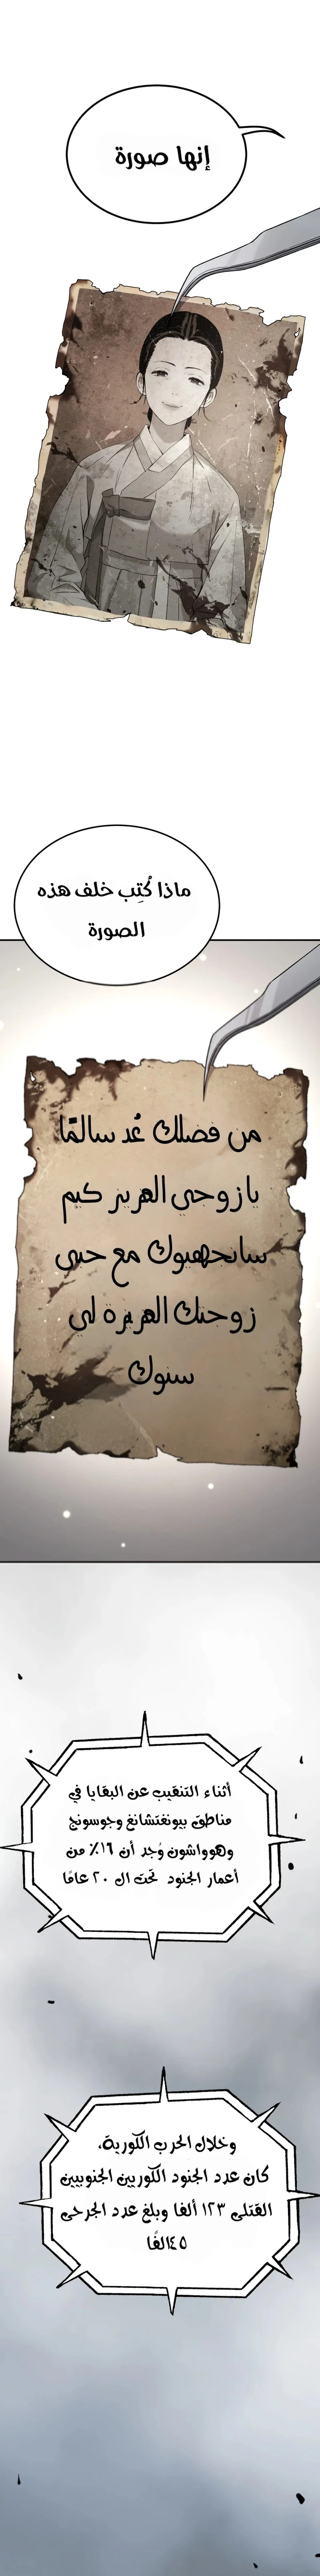 إنها صورة
ماذا كُتِب خلف هذه
الصورة
من فضلك عُد سالمًا
يا زوجي العزيز كيم
سانجهيوك مع حبي
زوجتك العزيزة لي
سنوك
أثناء التنقيب عن البقايا في
مناطق بيونغتشانغ وجوسونج
وهوواشون وُجد أن ١٦٪ من
أعمار الجنود تحت ال ٢٠ عامًا
وخلال الحرب الكورية،
كان عدد الجنود الكوريين الجنوبيين
القتلى ١٢٣ ألفا وبلغ عدد الجرحى
٤٥الفًا